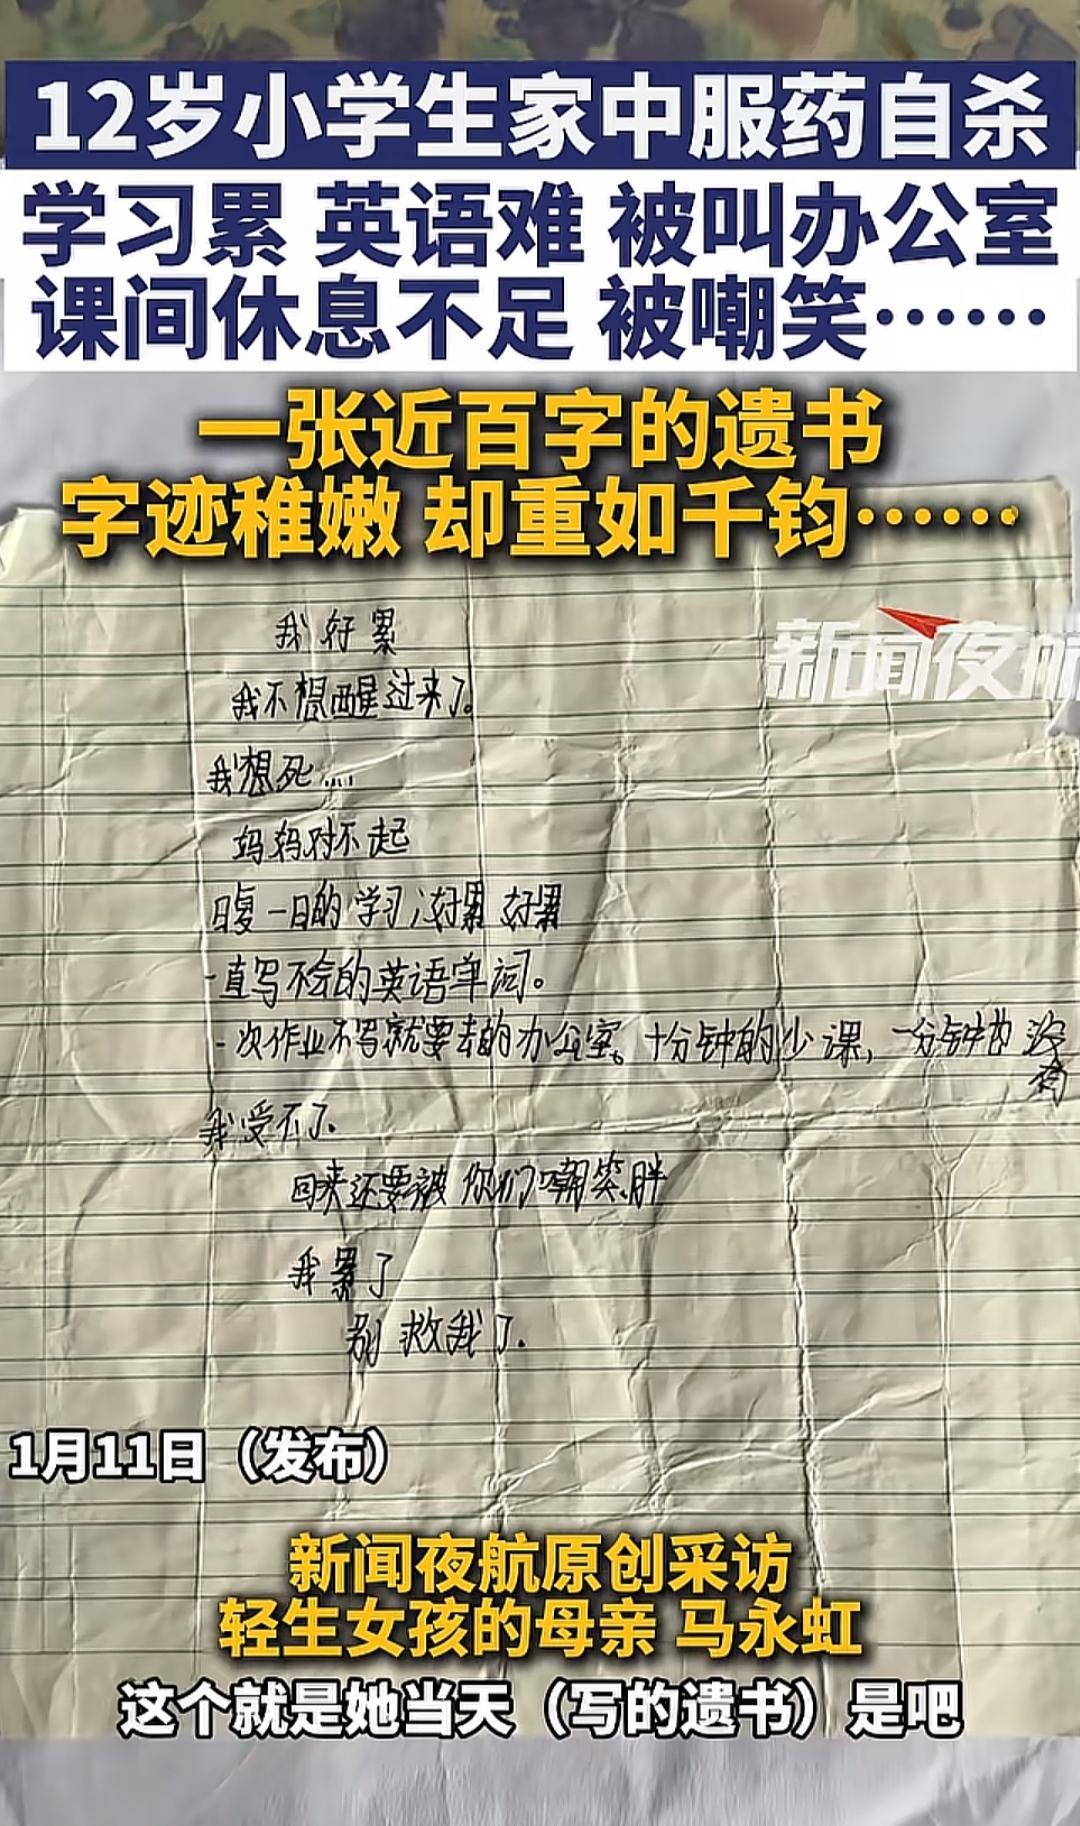 12岁小学生家中服药自杀
学习累 英语难 被叫办公室
课间休息不足 被嘲笑……
一张近百字的遗书
字迹稚嫩 却重如千钧……
新闻夜航
我好累
我不想醒过来了。
我想死....
妈妈对不起
日复一日的学习,好累 好累
一直写不会的英语单词。
一次作业不写就要去的办公室。十分钟的少课,一分钟也没有
我受不了.
回来还要被你们嘲笑胖
我累了
别救我了.
1月11日（发布）
新闻夜航原创采访
轻生女孩的母亲 马永虹
这个就是她当天（写的遗书）是吧